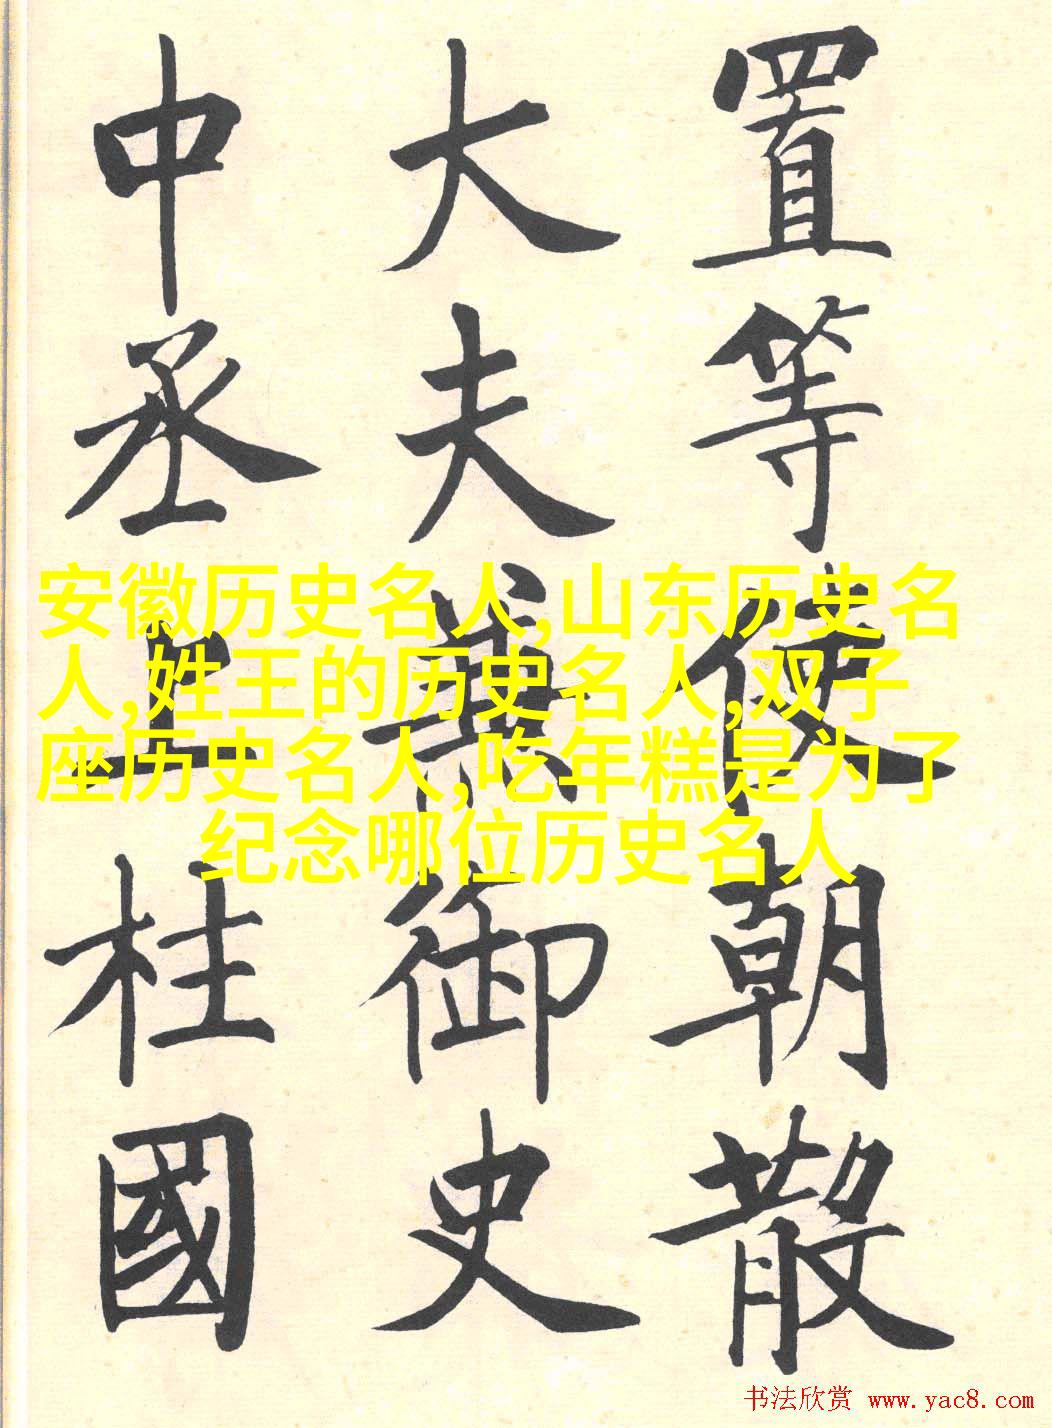 置等使朝散
大夫兼御史
中丞上柱國
安徽历史名人,山东历史名
人,姓王的历史名人,双子
座历史名人,吃年糕是为了
纪念哪位历史名人
书法欣赏 www.yac8.com